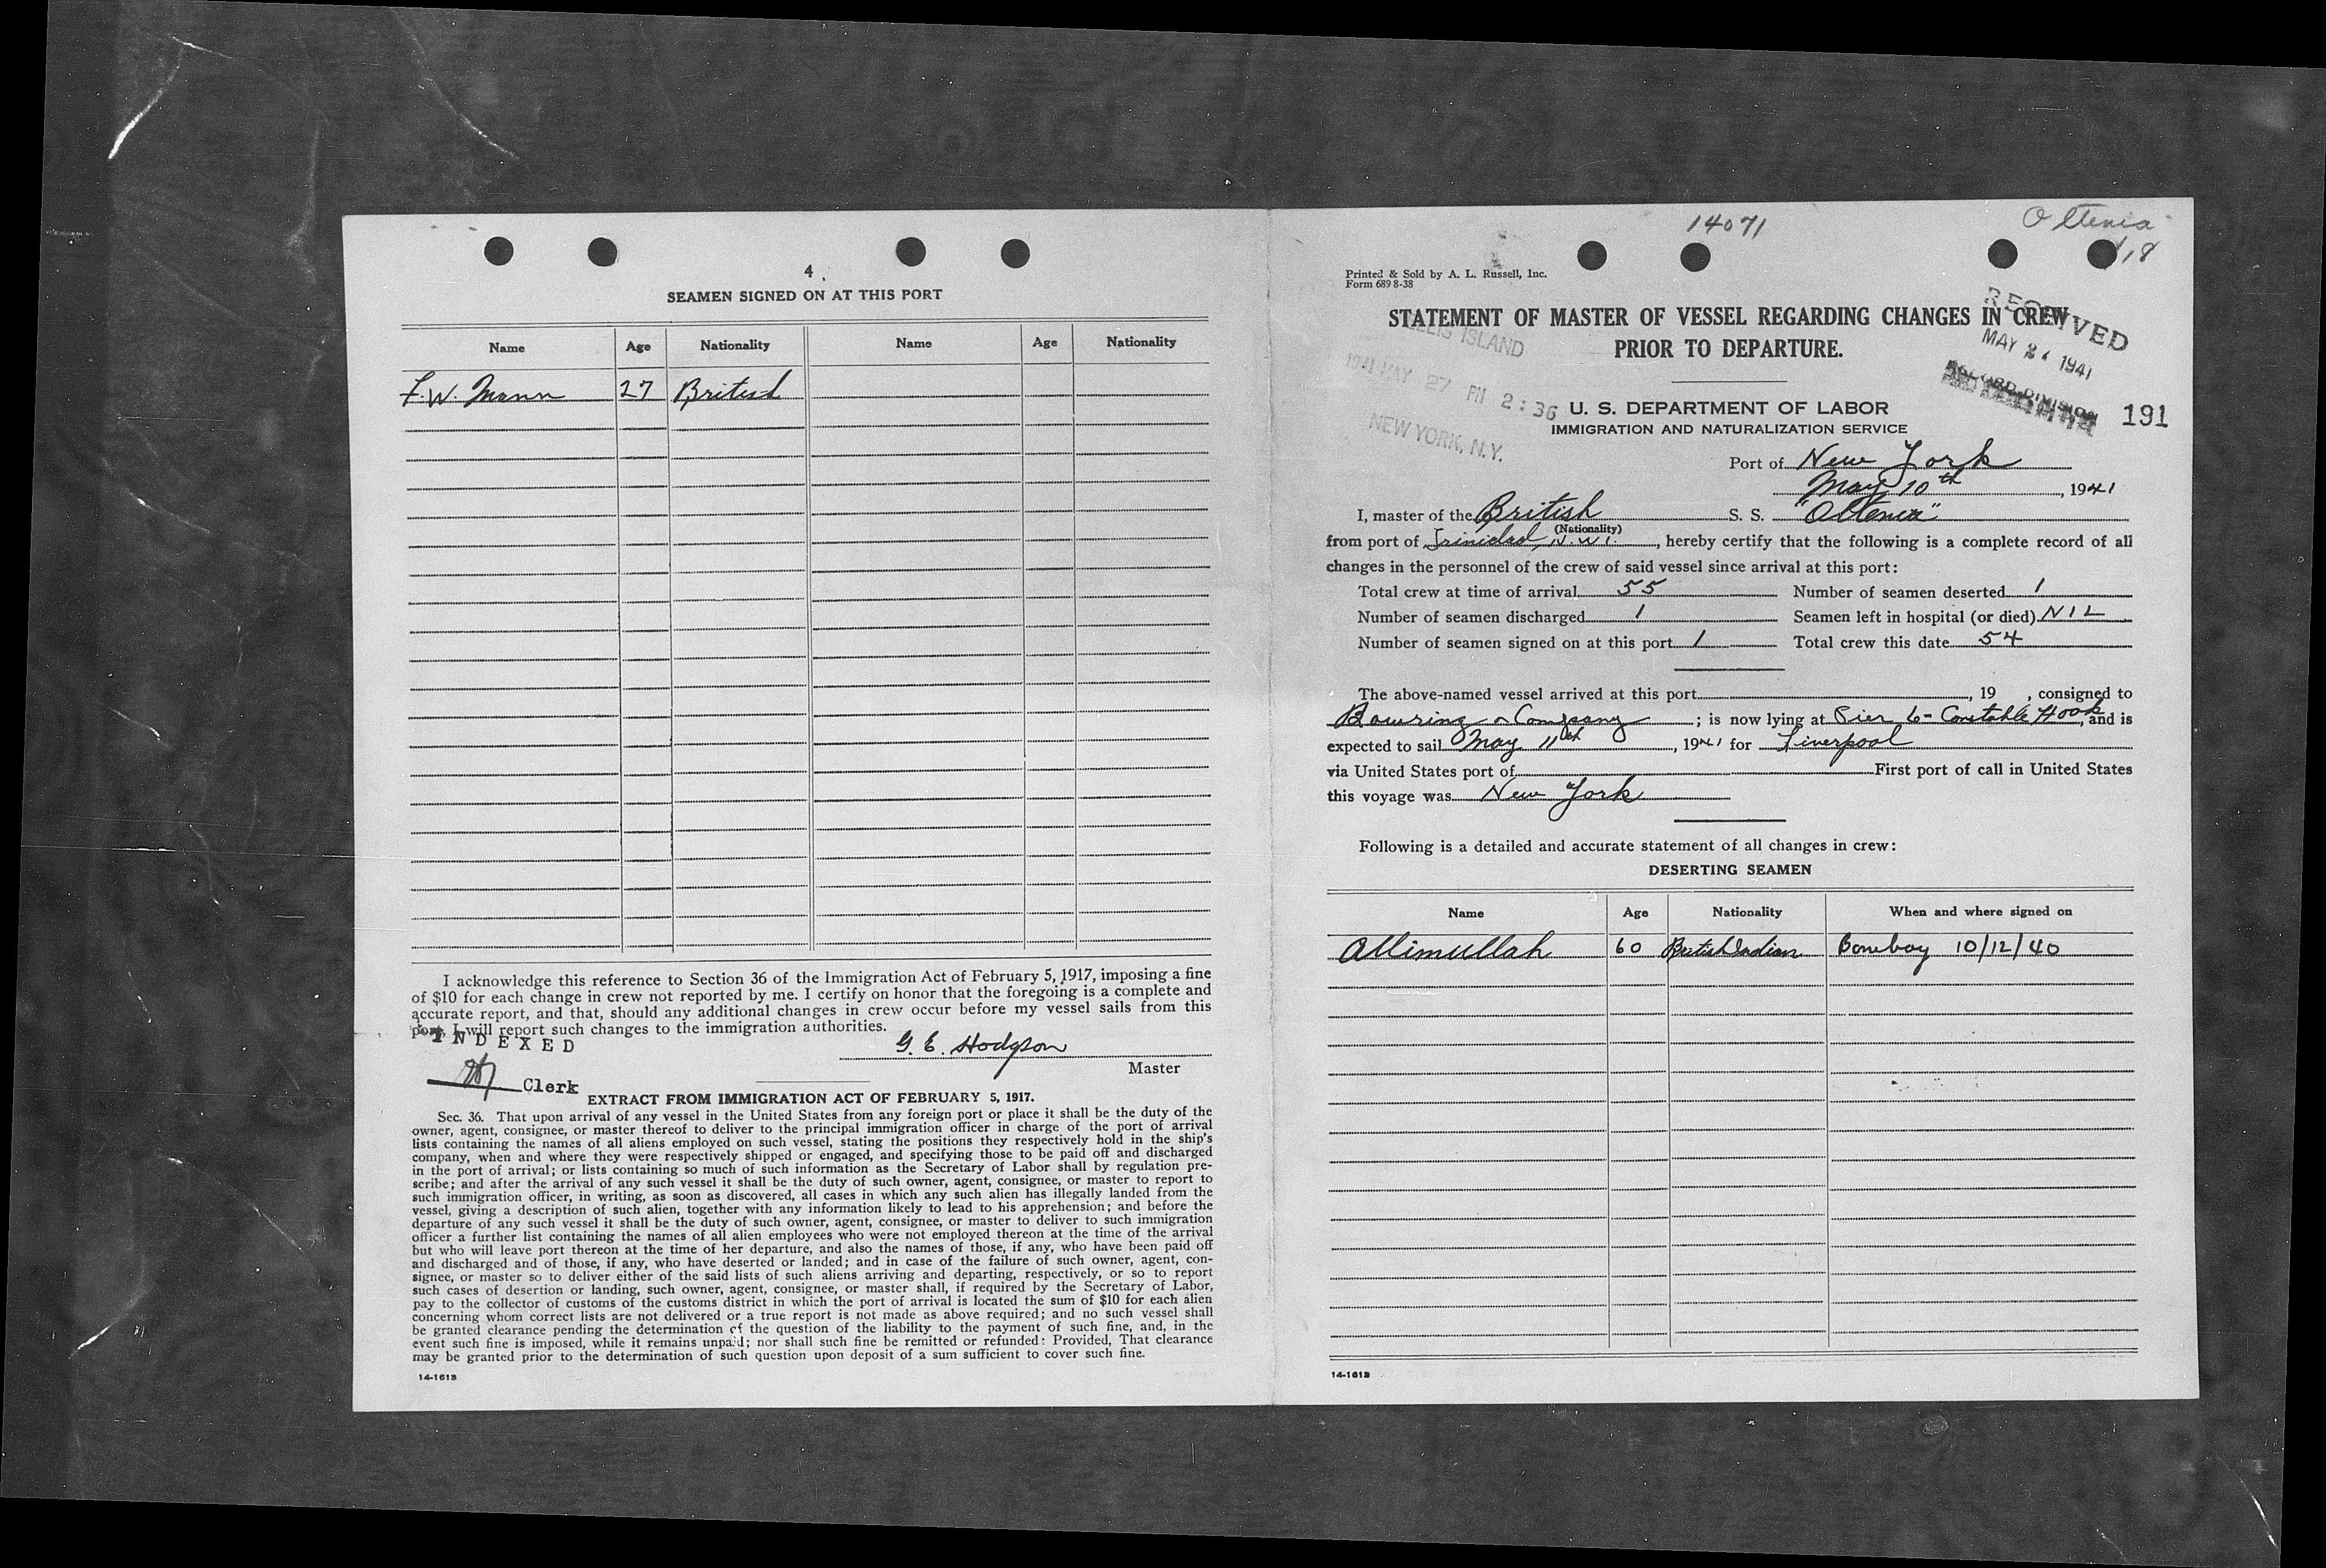 4.
SEAMEN SIGNED ON AT THIS PORT
Name Age Nationality Name Age Nationality
F. W. Mann 27 British
I acknowledge this reference to Section 36 of the Immigration Act of February 5, 1917, imposing a fine
of $10 for each change in crew not reported by me. I certify on honor that the foregoing is a complete and
accurate report, and that, should any additional changes in crew occur before my vessel sails from this
port, I will report such changes to the immigration authorities.
INDEXED
G. E. Hodgson
Master
Clerk
EXTRACT FROM IMMIGRATION ACT OF FEBRUARY 5, 1917.
Sec. 36. That upon arrival of any vessel in the United States from any foreign port or place it shall be the duty of the
owner, agent, consignee, or master thereof to deliver to the principal immigration officer in charge of the port of arrival
lists containing the names of all aliens employed on such vessel, stating the positions they respectively hold in the ship's
company, when and where they were respectively shipped or engaged, and specifying those to be paid off and discharged
in the port of arrival; or lists containing so much of such information as the Secretary of Labor shall by regulation pre-
scribe; and after the arrival of any such vessel it shall be the duty of such owner, agent, consignee, or master to report to
such immigration officer, in writing, as soon as discovered, all cases in which any such alien has illegally landed from the
vessel, giving a description of such alien, together with any information likely to lead to his apprehension; and before the
departure of any such vessel it shall be the duty of such owner, agent, consignee, or master to deliver to such immigration
officer a further list containing the names of all alien employees who were not employed thereon at the time of the arrival
but who will leave port thereon at the time of her departure, and also the names of those, if any, who have been paid off
and discharged and of those, if any, who have deserted or landed; and in case of the failure of such owner, agent, con-
signee, or master so to deliver either of the said lists of such aliens arriving and departing, respectively, or so to report
such cases of desertion or landing, such owner, agent, consignee, or master shall, if required by the Secretary of Labor,
pay to the collector of customs of the customs district in which the port of arrival is located the sum of $10 for each alien
concerning whom correct lists are not delivered or a true report is not made as above required; and no such vessel shall
be granted clearance pending the determination of the question of the liability to the payment of such fine, and, in the
event such fine is imposed, while it remains unpaid; nor shall such fine be remitted or refunded: Provided, That clearance
may be granted prior to the determination of such question upon deposit of a sum sufficient to cover such fine.
14-1613
14071
Oltenia
Printed & Sold by A. L. Russell, Inc.
Form 689 8-38
STATEMENT OF MASTER OF VESSEL REGARDING CHANGES IN CREW
PRIOR TO DEPARTURE.
RECEIVED
MAY 27 1941
RECORD DIVISION
ELLIS ISLAND
1941 MAY 27 PM 2:36
NEW YORK, N.Y.
191
U. S. DEPARTMENT OF LABOR
IMMIGRATION AND NATURALIZATION SERVICE
Port of New York
May 10th, 1941
I, master of the British S. S. "Oltenia"
(Nationality)
from port of Trinidad, , hereby certify that the following is a complete record of all
changes in the personnel of the crew of said vessel since arrival at this port:
Total crew at time of arrival 55 Number of seamen deserted 1
Number of seamen discharged 1 Seamen left in hospital (or died) NIL
Number of seamen signed on at this port 1 Total crew this date 54
The above-named vessel arrived at this port , 19 , consigned to
Bowring & Company ; is now lying at Pier 6 - Constable Hook, and is
expected to sail May 11th, 1941 for Liverpool
via United States port of First port of call in United States
this voyage was New York
Following is a detailed and accurate statement of all changes in crew:
DESERTING SEAMEN
Name Age Nationality When and where signed on
Allimullah 60 British Indian Bombay 10/12/40
14-1613